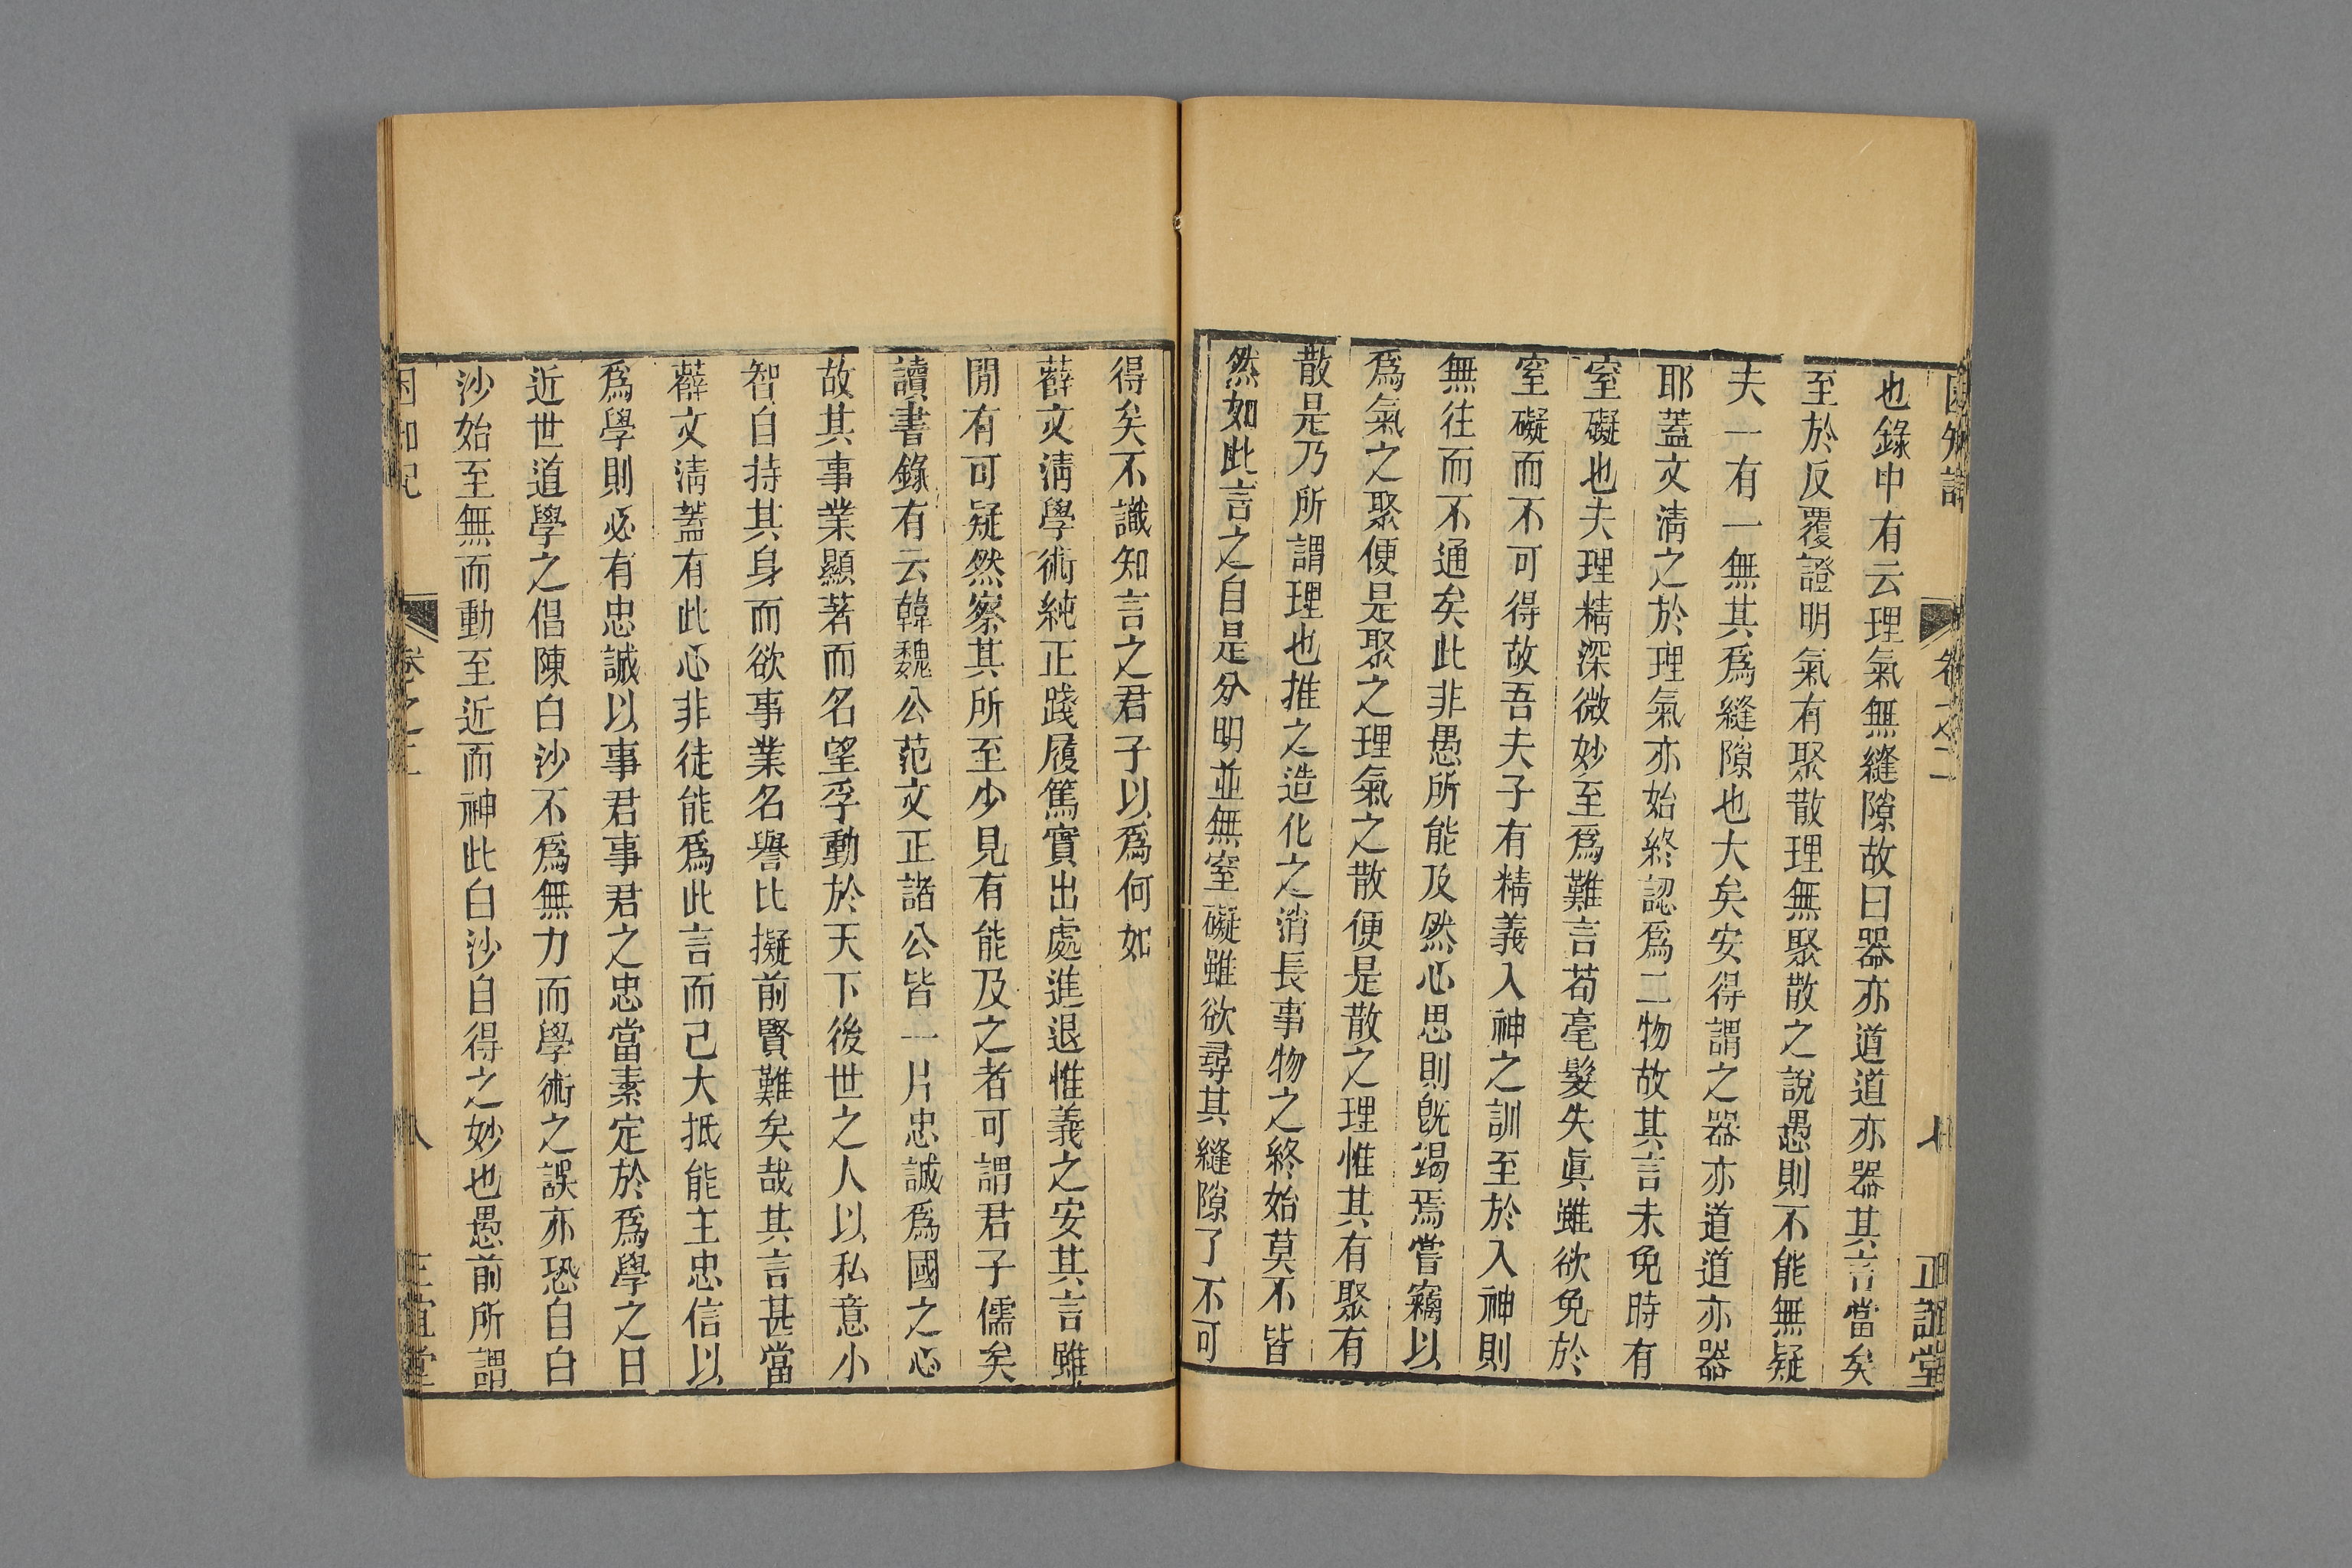 困知記
卷之二
七
正誼堂
也錄中有云理氣無縫隙故曰器亦道道亦器其言當矣
至於反覆證明氣有聚散理無聚散之說愚則不能無疑
夫一有一無其爲縫隙也大矣安得謂之器亦道道亦器
耶蓋文淸之於理氣亦始終認爲二物故其言未免時有
窒礙也夫理精深微妙至爲難言苟毫髮失眞雖欲免於
窒礙而不可得故吾夫子有精義入神之訓至於入神則
無往而不通矣此非愚所能及然心思則旣竭焉嘗竊以
爲氣之聚便是聚之理氣之散便是散之理惟其有聚有
散是乃所謂理也推之造化之消長事物之終始莫不皆
然如此言之自是分明並無窒礙雖欲尋其縫隙了不可
得矣不識知言之君子以爲何如
薛文淸學術純正踐履篤實出處進退惟義之安其言雖
閒有可疑然察其所至少見有能及之者可謂君子儒矣
讀書錄有云韓魏公范文正諸公皆一片忠誠爲國之心
故其事業顯著而名望孚動於天下後世之人以私意小
智自持其身而欲事業名譽比擬前賢難矣哉其言甚當
薛文淸蓋有此心非徒能爲此言而已大抵能主忠信以
爲學則必有忠誠以事君事君之忠當素定於爲學之日
近世道學之倡陳白沙不爲無力而學術之誤亦恐自白
沙始至無而動至近而神此白沙自得之妙也愚前所謂
困知記
卷之二
八
正誼堂